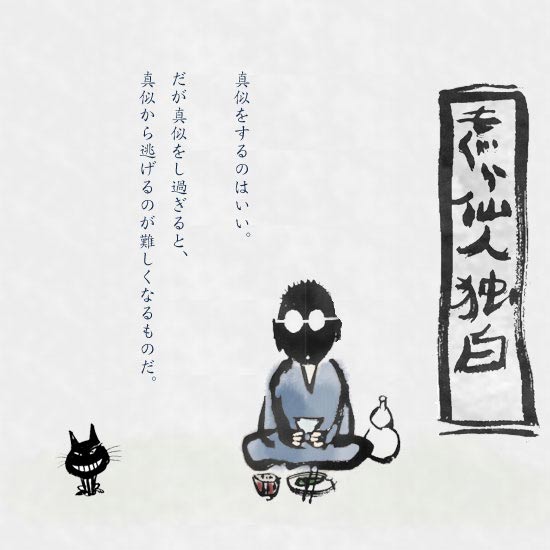 仙人独白
真似をするのはいい。
だが真似をし過ぎると、
真似から逃げるのが難しくなるものだ。